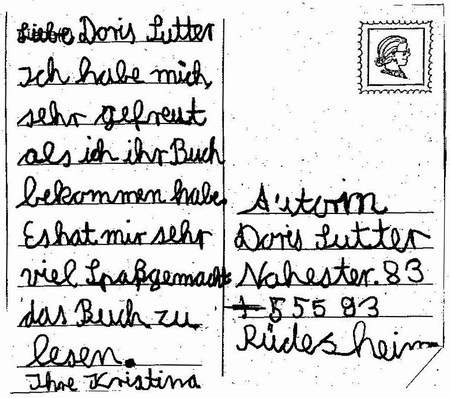 Liebe Doris Sutter
Ich habe mich
sehr gefreut
als ich ihr Buch
bekommen habe.
Es hat mir sehr
viel Spaß gemacht
das Buch zu
lesen.
Ihre Kristina
Autorin
Doris Sutter
Nahester. 83
55593
Rüdesheim